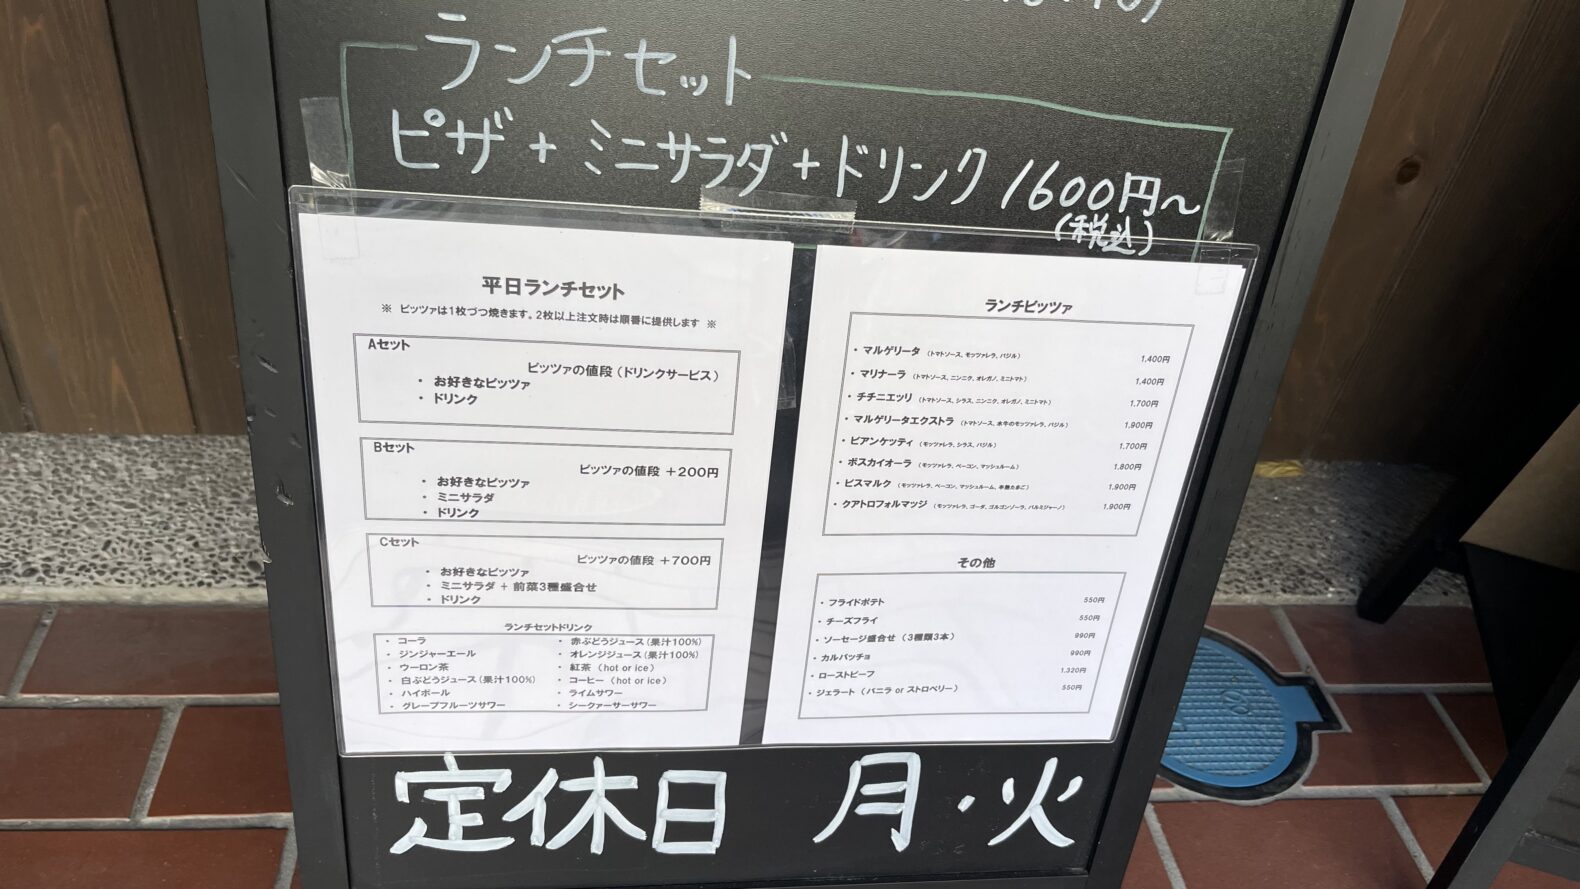 ランチセット
ピザ + ミニサラダ + ドリンク 1600円〜
(税込)
平日ランチセット
※ ピッツァは1枚づつ焼きます。2枚以上注文時は順番に提供します ※
Aセット
ピッツァの値段（ドリンクサービス）
・ お好きなピッツァ
・ ドリンク
Bセット
ピッツァの値段 ＋200円
・ お好きなピッツァ
・ ミニサラダ
・ ドリンク
Cセット
ピッツァの値段 ＋700円
・ お好きなピッツァ
・ ミニサラダ + 前菜3種盛合せ
・ ドリンク
ランチセットドリンク
・ コーラ
・ ジンジャーエール
・ ウーロン茶
・ 白ぶどうジュース(果汁100%)
・ ハイボール
・ グレープフルーツサワー
・ 赤ぶどうジュース(果汁100%)
・ オレンジジュース(果汁100%)
・ 紅茶（hot or ice）
・ コーヒー（hot or ice）
・ ライムサワー
・ シークァーサーサワー
ランチピッツァ
・ マルゲリータ （トマトソース、モッツァレラ、バジル） 1,400円
・ マリナーラ （トマトソース、ニンニク、オレガノ、ミニトマト） 1,400円
・ チチニエッリ （トマトソース、シラス、ニンニク、オレガノ、ミニトマト） 1,700円
・ マルゲリータエクストラ （トマトソース、水牛のモッツァレラ、バジル） 1,900円
・ ビアンケッティ （モッツァレラ、シラス、バジル） 1,700円
・ ボスカイオーラ （モッツァレラ、ベーコン、マッシュルーム） 1,800円
・ ビスマルク （モッツァレラ、ベーコン、マッシュルーム、半熟たまご） 1,900円
・ クアトロフォルマッジ （モッツァレラ、ゴーダ、ゴルゴンゾーラ、パルミジャーノ） 1,900円
その他
・ フライドポテト 550円
・ チーズフライ 550円
・ ソーセージ盛合せ（3種類3本） 990円
・ カルパッチョ 990円
・ ローストビーフ 1,320円
・ ジェラート（バニラ or ストロベリー） 550円
定休日 月・火